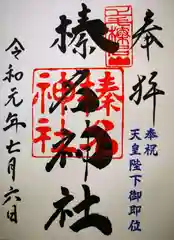 奉拝
奉祝
天皇陛下御即位
榛名神社
令和元年七月六日